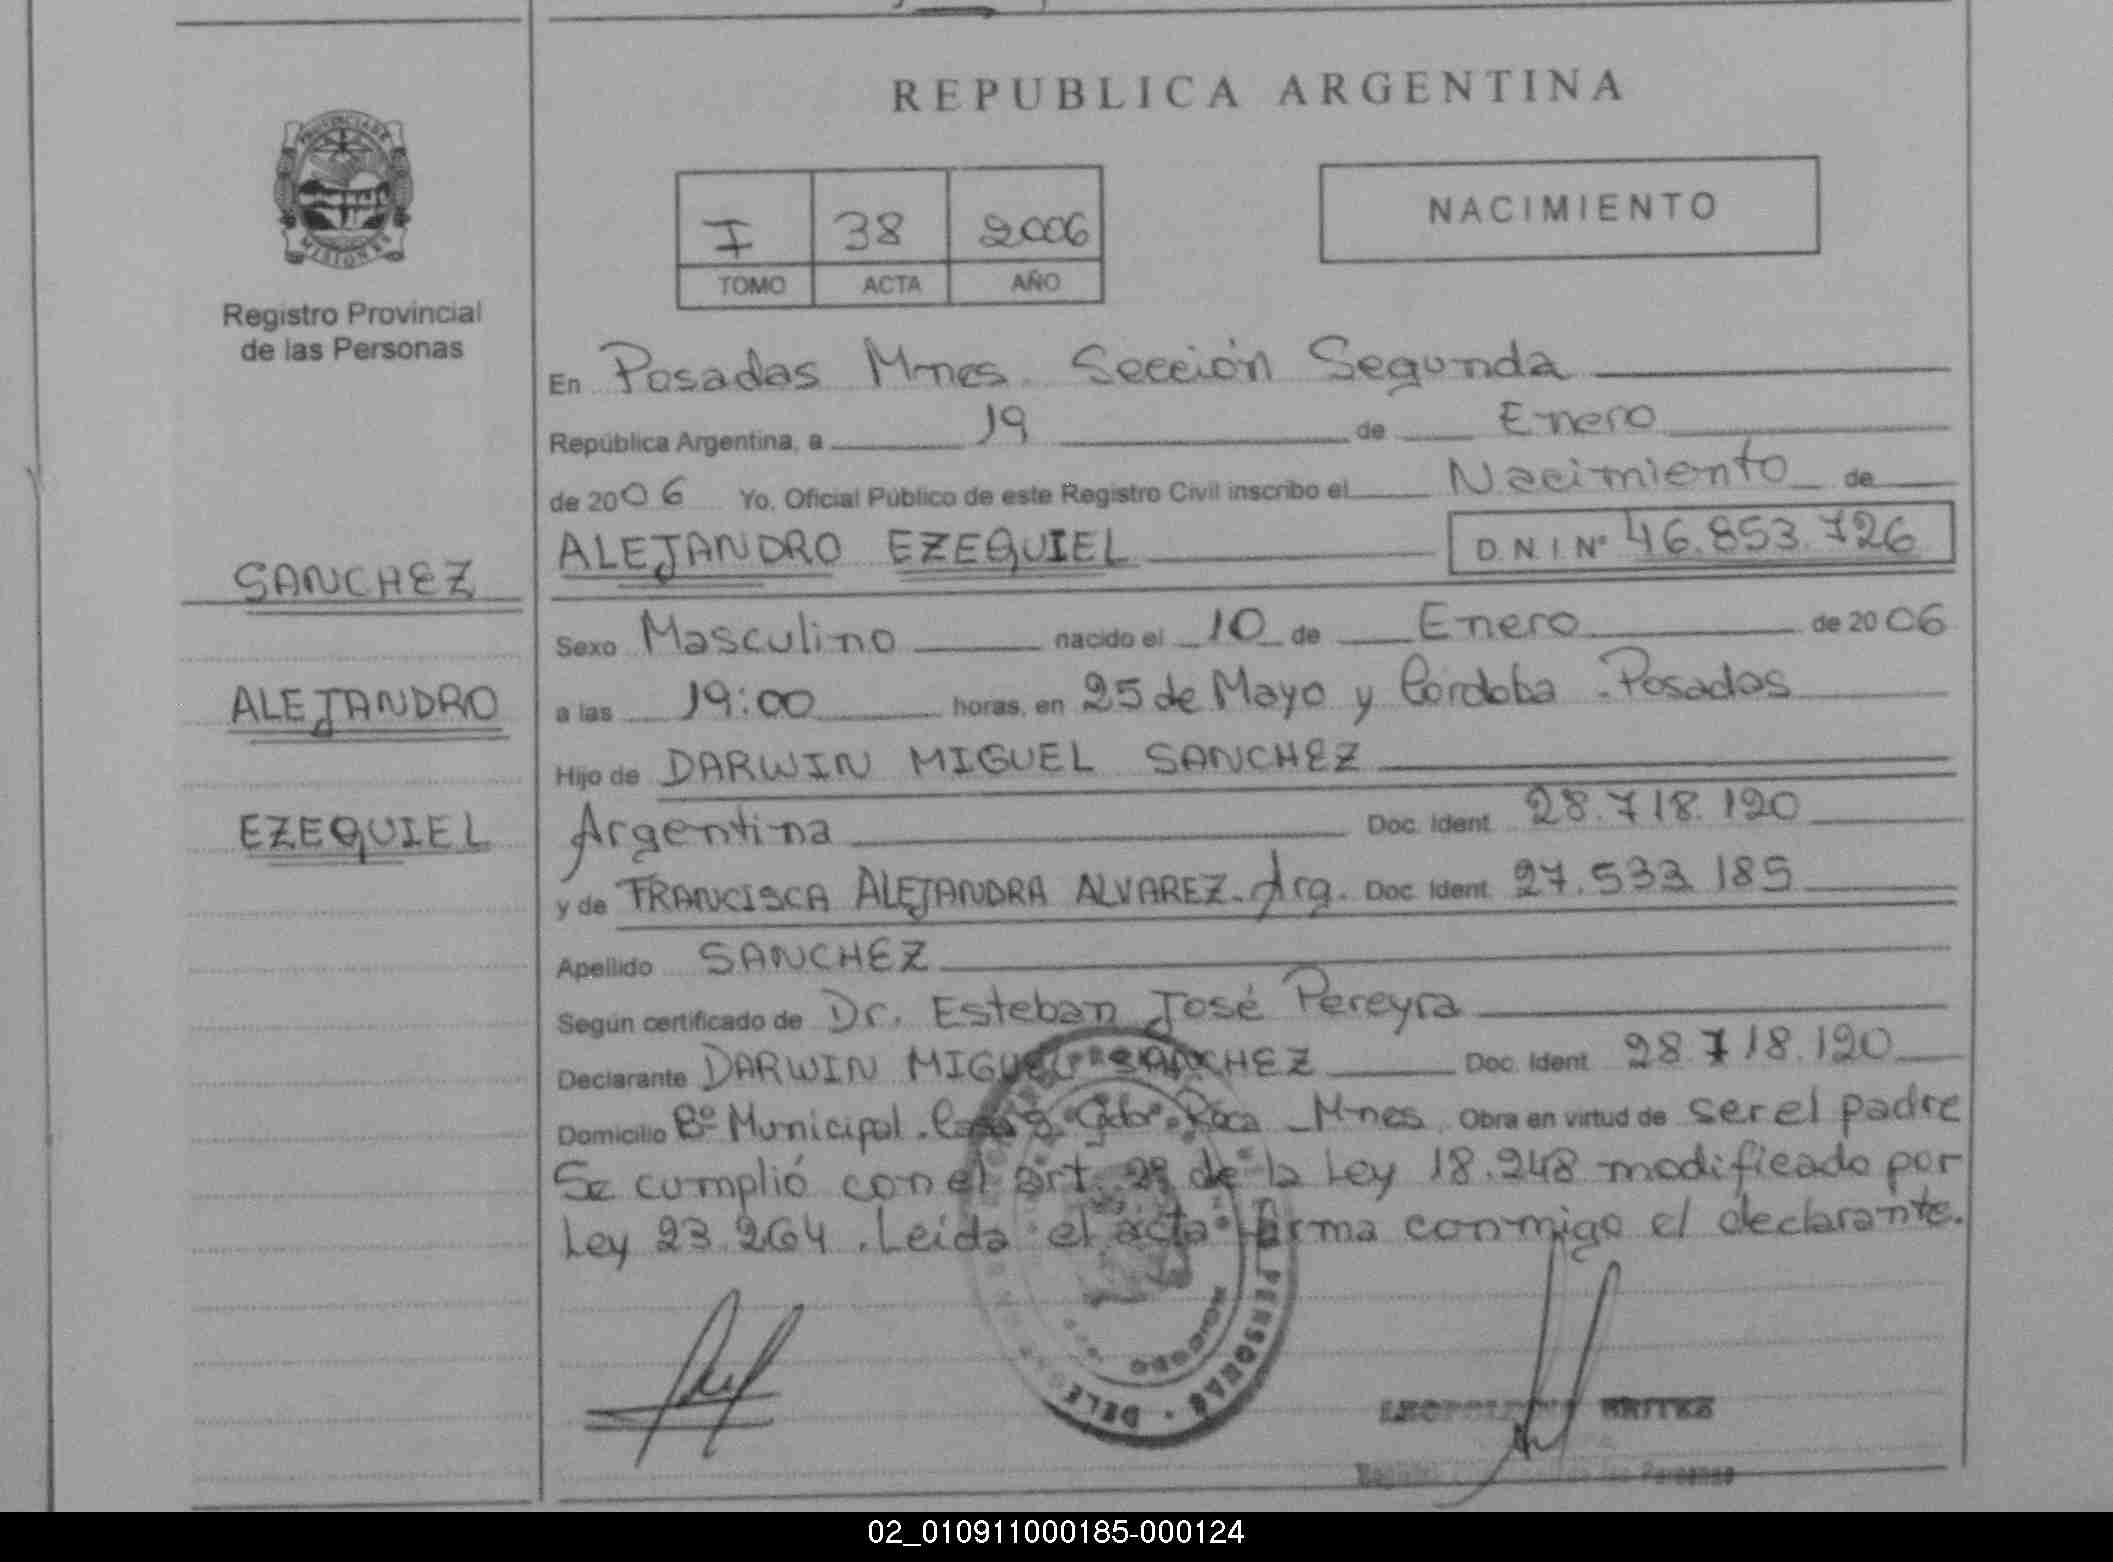 REPUBLICA ARGENTINA
PROVINCIA DE
MISIONES
Registro Provincial
de las Personas
I 38 2006
TOMO ACTA AÑO
NACIMIENTO
En Posadas Mnes. Sección Segunda
República Argentina, a 19 de Enero
de 2006 Yo, Oficial Público de este Registro Civil inscribo el Nacimiento de
ALEJANDRO EZEQUIEL D.N.I. Nº 46.853.726
SANCHEZ
ALEJANDRO
EZEQUIEL
Sexo Masculino nacido el 10 de Enero de 2006
a las 19:00 horas, en 25 de Mayo y Córdoba - Posadas
Hijo de DARWIN MIGUEL SANCHEZ
Argentina Doc. Ident. 28.718.120
y de FRANCISCA ALEJANDRA ALVAREZ - Arg. Doc. Ident. 27.533.185
Apellido SANCHEZ
Según certificado de Dr. Esteban José Pereyra
Declarante DARWIN MIGUEL SANCHEZ Doc. Ident. 28.718.120
Domicilio Bº Municipal. Gdor. Roca Mnes. Obra en virtud de ser el padre
Se cumplió con el art. de la Ley 18.248 modificado por
Ley 23.264. Leida el acta firma conmigo el declarante.
PERSONAS · DELE
BRITES
Personas
02_010911000185-000124